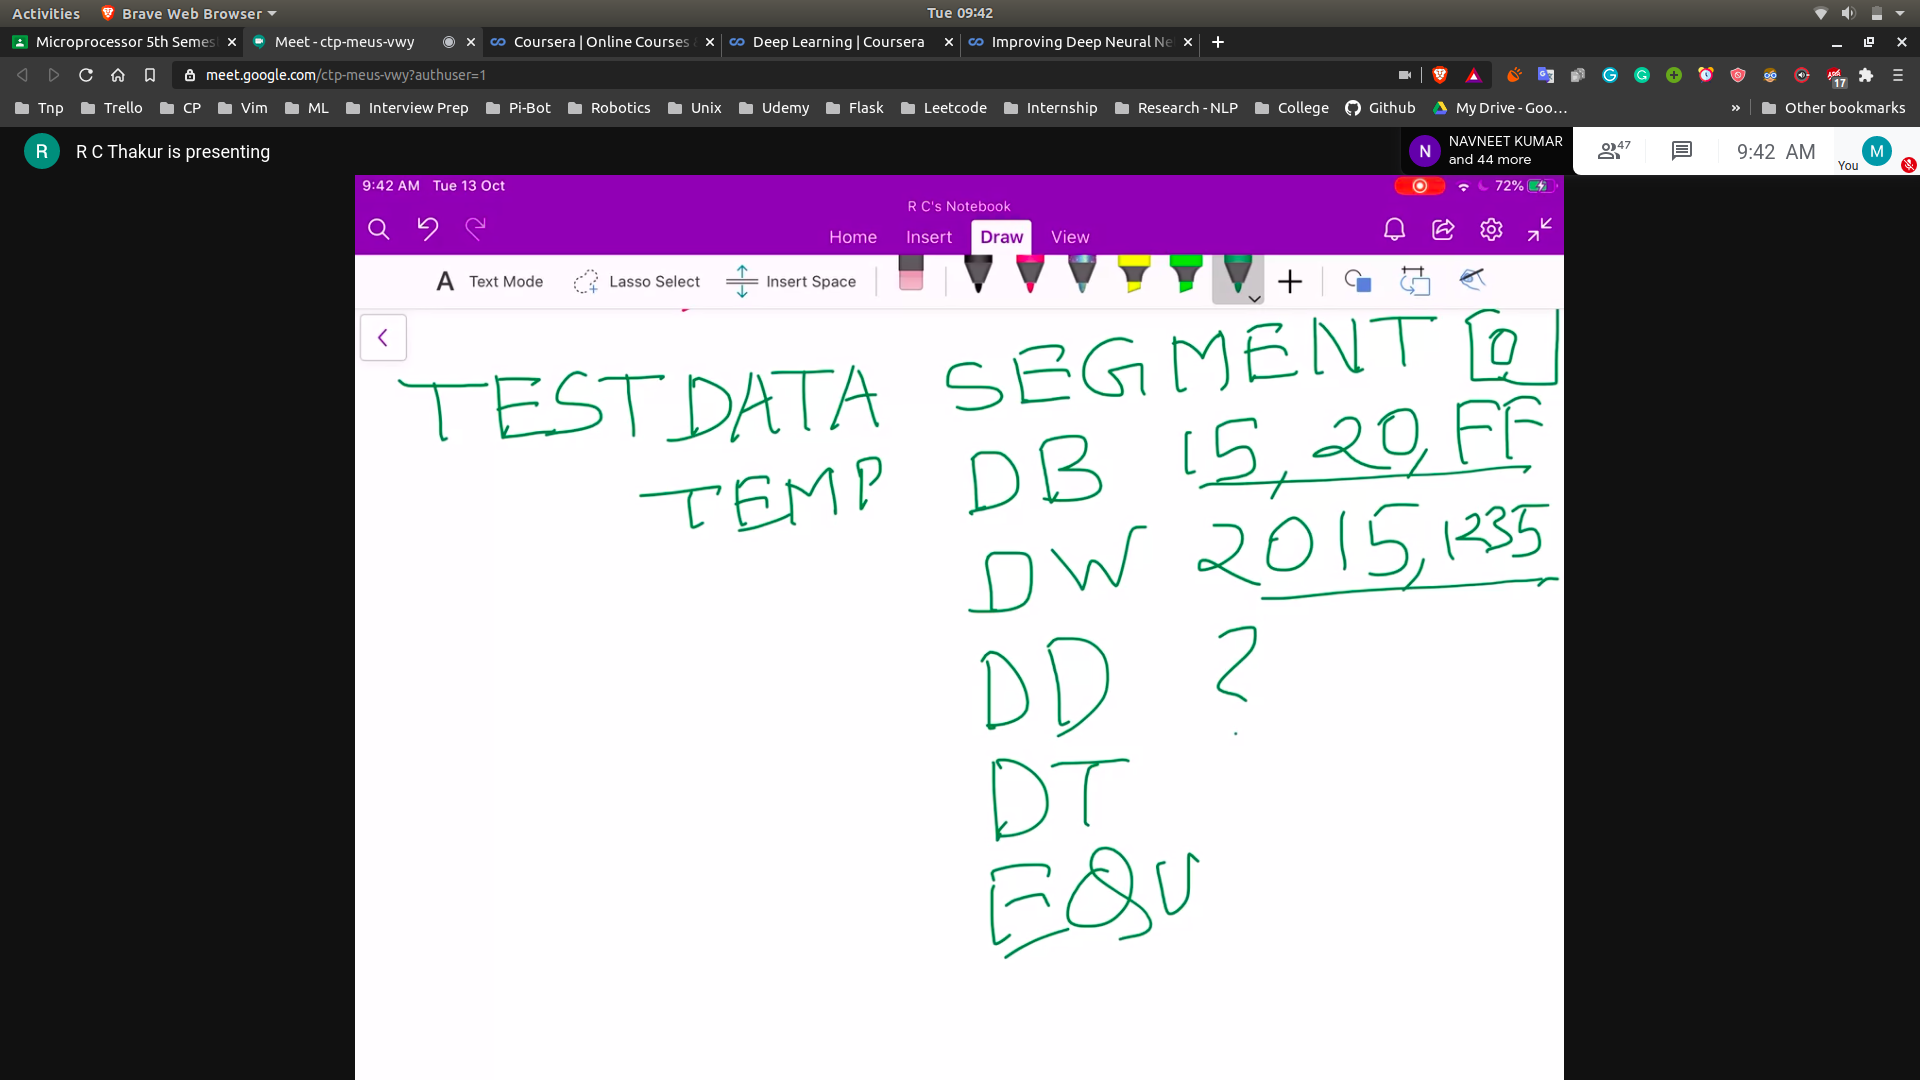 Activities Brave Web Browser Tue 09:42
Microprocessor 5th Semes Meet - ctp-meus-vwy Coursera | Online Courses Deep Learning | Coursera Improving Deep Neural Ne
meet.google.com/ctp-meus-vwy?authuser=1 17
Tnp Trello CP Vim ML Interview Prep Pi-Bot Robotics Unix Udemy Flask Leetcode Internship Research - NLP College Github My Drive - Goo… » Other bookmarks
R R C Thakur is presenting N NAVNEET KUMAR and 44 more 47 9:42 AM You M
9:42 AM Tue 13 Oct 72%
R C's Notebook
Home Insert Draw View
A Text Mode Lasso Select Insert Space
TESTDATA SEGMENT 0
TEMP DB 15, 20, FF
DW 2015, 1235
DD ?
DT
EQU